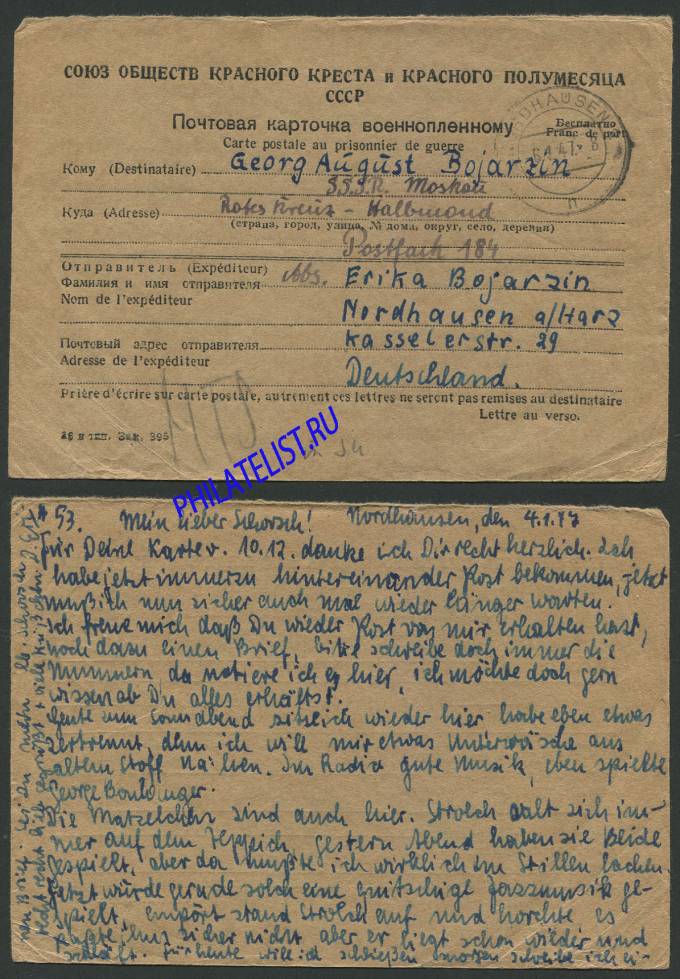 СОЮЗ ОБЩЕСТВ КРАСНОГО КРЕСТА и КРАСНОГО ПОЛУМЕСЯЦА
СССР
Почтовая карточка военнопленному
Бесплатно
Franc de port
Carte postale au prisonnier de guerre
NORDHAUSEN
Кому (Destinataire) Georg August Bojarzin
S.S.S.R. Moskau
Куда (Adresse) Rotes Kreuz - Halbmond
(страна, город, улица, № дома, округ, село, деревня)
Postfach 184
Отправитель (Expéditeur) Abs. Erika Bojarzin
Фамилия и имя отправителя
Nom de l'expéditeur Nordhausen a/Harz
Почтовый адрес отправителя Kasselerstr. 29
Adresse de l'expéditeur
Deutschland.
Prière d'écrire sur carte postale, autrement ces lettres ne seront pas remises au destinataire
Lettre au verso.
16 я тип. Зак. 395
PHILATELIST.RU
№ 53. Mein lieber Schorsch! Nordhausen, den 4.1.47
Für Deine Karte v. 10.12. danke ich Dir recht herzlich. Ich
habe jetzt immerzu hintereinander Post bekommen, jetzt
muß ich nun sicher auch mal wieder länger warten.
Ich freue mich daß Du wieder Post von mir erhalten hast,
noch dazu einen Brief, bitte schreibe doch immer die
Nummern, da notiere ich es hier, ich möchte doch gern
wissen ob Du alles erhältst.
Heute am Sonnabend sitze ich wieder hier habe eben etwas
zertrennt, denn ich will mir etwas Unterwäsche aus
altem Stoff nähen. Im Radio gute Musik, eben spielte
George Boulanger.
Die Matzelchen sind auch hier. Strolch aalt sich im-
mer auf dem Teppich, gestern Abend haben sie Beide
gespielt, aber da mußte ich wirklich im Stillen lachen.
Jetzt würde gerade solch eine quitschige Jazzmusik ge-
spielt, empört stand Strolch auf und horchte es
sicher nicht, aber er liegt schon wieder und
schläft. Für heute will ich schließen morgen schreibe ich ei-
nen Brief. Sei Du mein lb. Schorsch
recht recht viele gegrüßt + viele Küßchen D. Erika